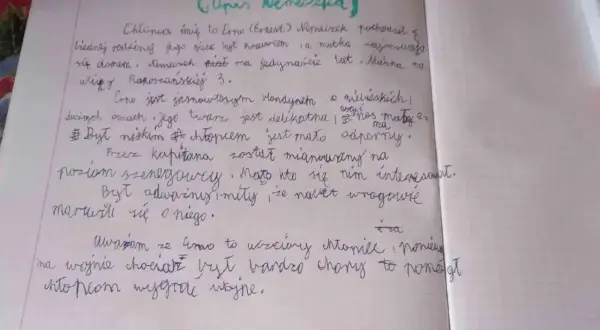 (Opis Nemeczka)
Chłopiec imię to Erno (Ernest) Nemeczek pochodzi z
biednej rodziny jego ojciec był krawcem, a matka zajmowała
się domem. Nemeczek miał ma jedynaście lat. Mieszka na
ulicy Rakoszańskiej 3.
Erno jest jasnowłosym blondynem o niebieskich,
dużych oczach, jego twarz jest delikatna,
Był niskim chłopcem jest mało odporny.
Przez kapitana został mianowany na
poziom szeregowcy. Mało kto się nim interesował.
Był odważny, miły, że nawet wrogowie
martwili się o niego.
Uważam ze Erno to uczciwy chłopiec, ponieważ
na wojnie chociaż był bardzo chory to pomógł
chłopcom wygrać wojne.